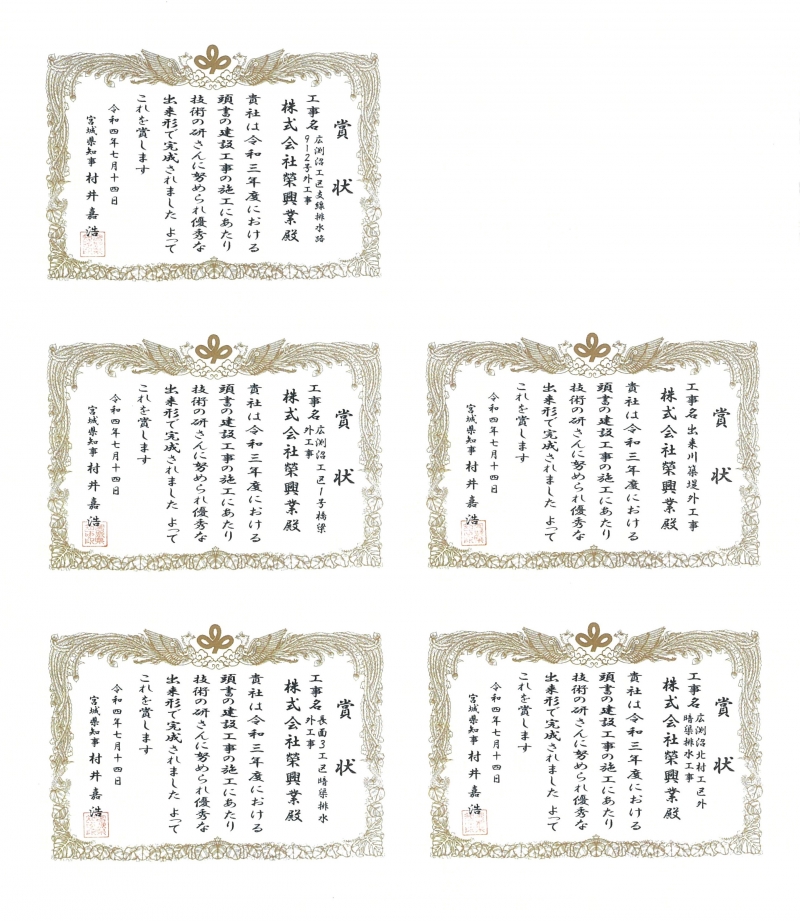 賞状
工事名 広渕沼工区支線排水路
912号外工事
株式会社榮興業殿
貴社は令和三年度における
頭書の建設工事の施工にあたり
技術の研さんに努められ優秀な
出来形で完成されました よって
これを賞します
令和四年七月十四日
宮城県知事 村井嘉浩
賞状
工事名 広渕沼工区1号橋梁
外工事
株式会社榮興業殿
貴社は令和三年度における
頭書の建設工事の施工にあたり
技術の研さんに努められ優秀な
出来形で完成されました よって
これを賞します
令和四年七月十四日
宮城県知事 村井嘉浩
賞状
工事名 出来川築堤外工事
株式会社榮興業殿
貴社は令和三年度における
頭書の建設工事の施工にあたり
技術の研さんに努められ優秀な
出来形で完成されました よって
これを賞します
令和四年七月十四日
宮城県知事 村井嘉浩
賞状
工事名 長面3工区暗渠排水
外工事
株式会社榮興業殿
貴社は令和三年度における
頭書の建設工事の施工にあたり
技術の研さんに努められ優秀な
出来形で完成されました よって
これを賞します
令和四年七月十四日
宮城県知事 村井嘉浩
賞状
工事名 広渕沼北村工区外
暗渠排水工事
株式会社榮興業殿
貴社は令和三年度における
頭書の建設工事の施工にあたり
技術の研さんに努められ優秀な
出来形で完成されました よって
これを賞します
令和四年七月十四日
宮城県知事 村井嘉浩